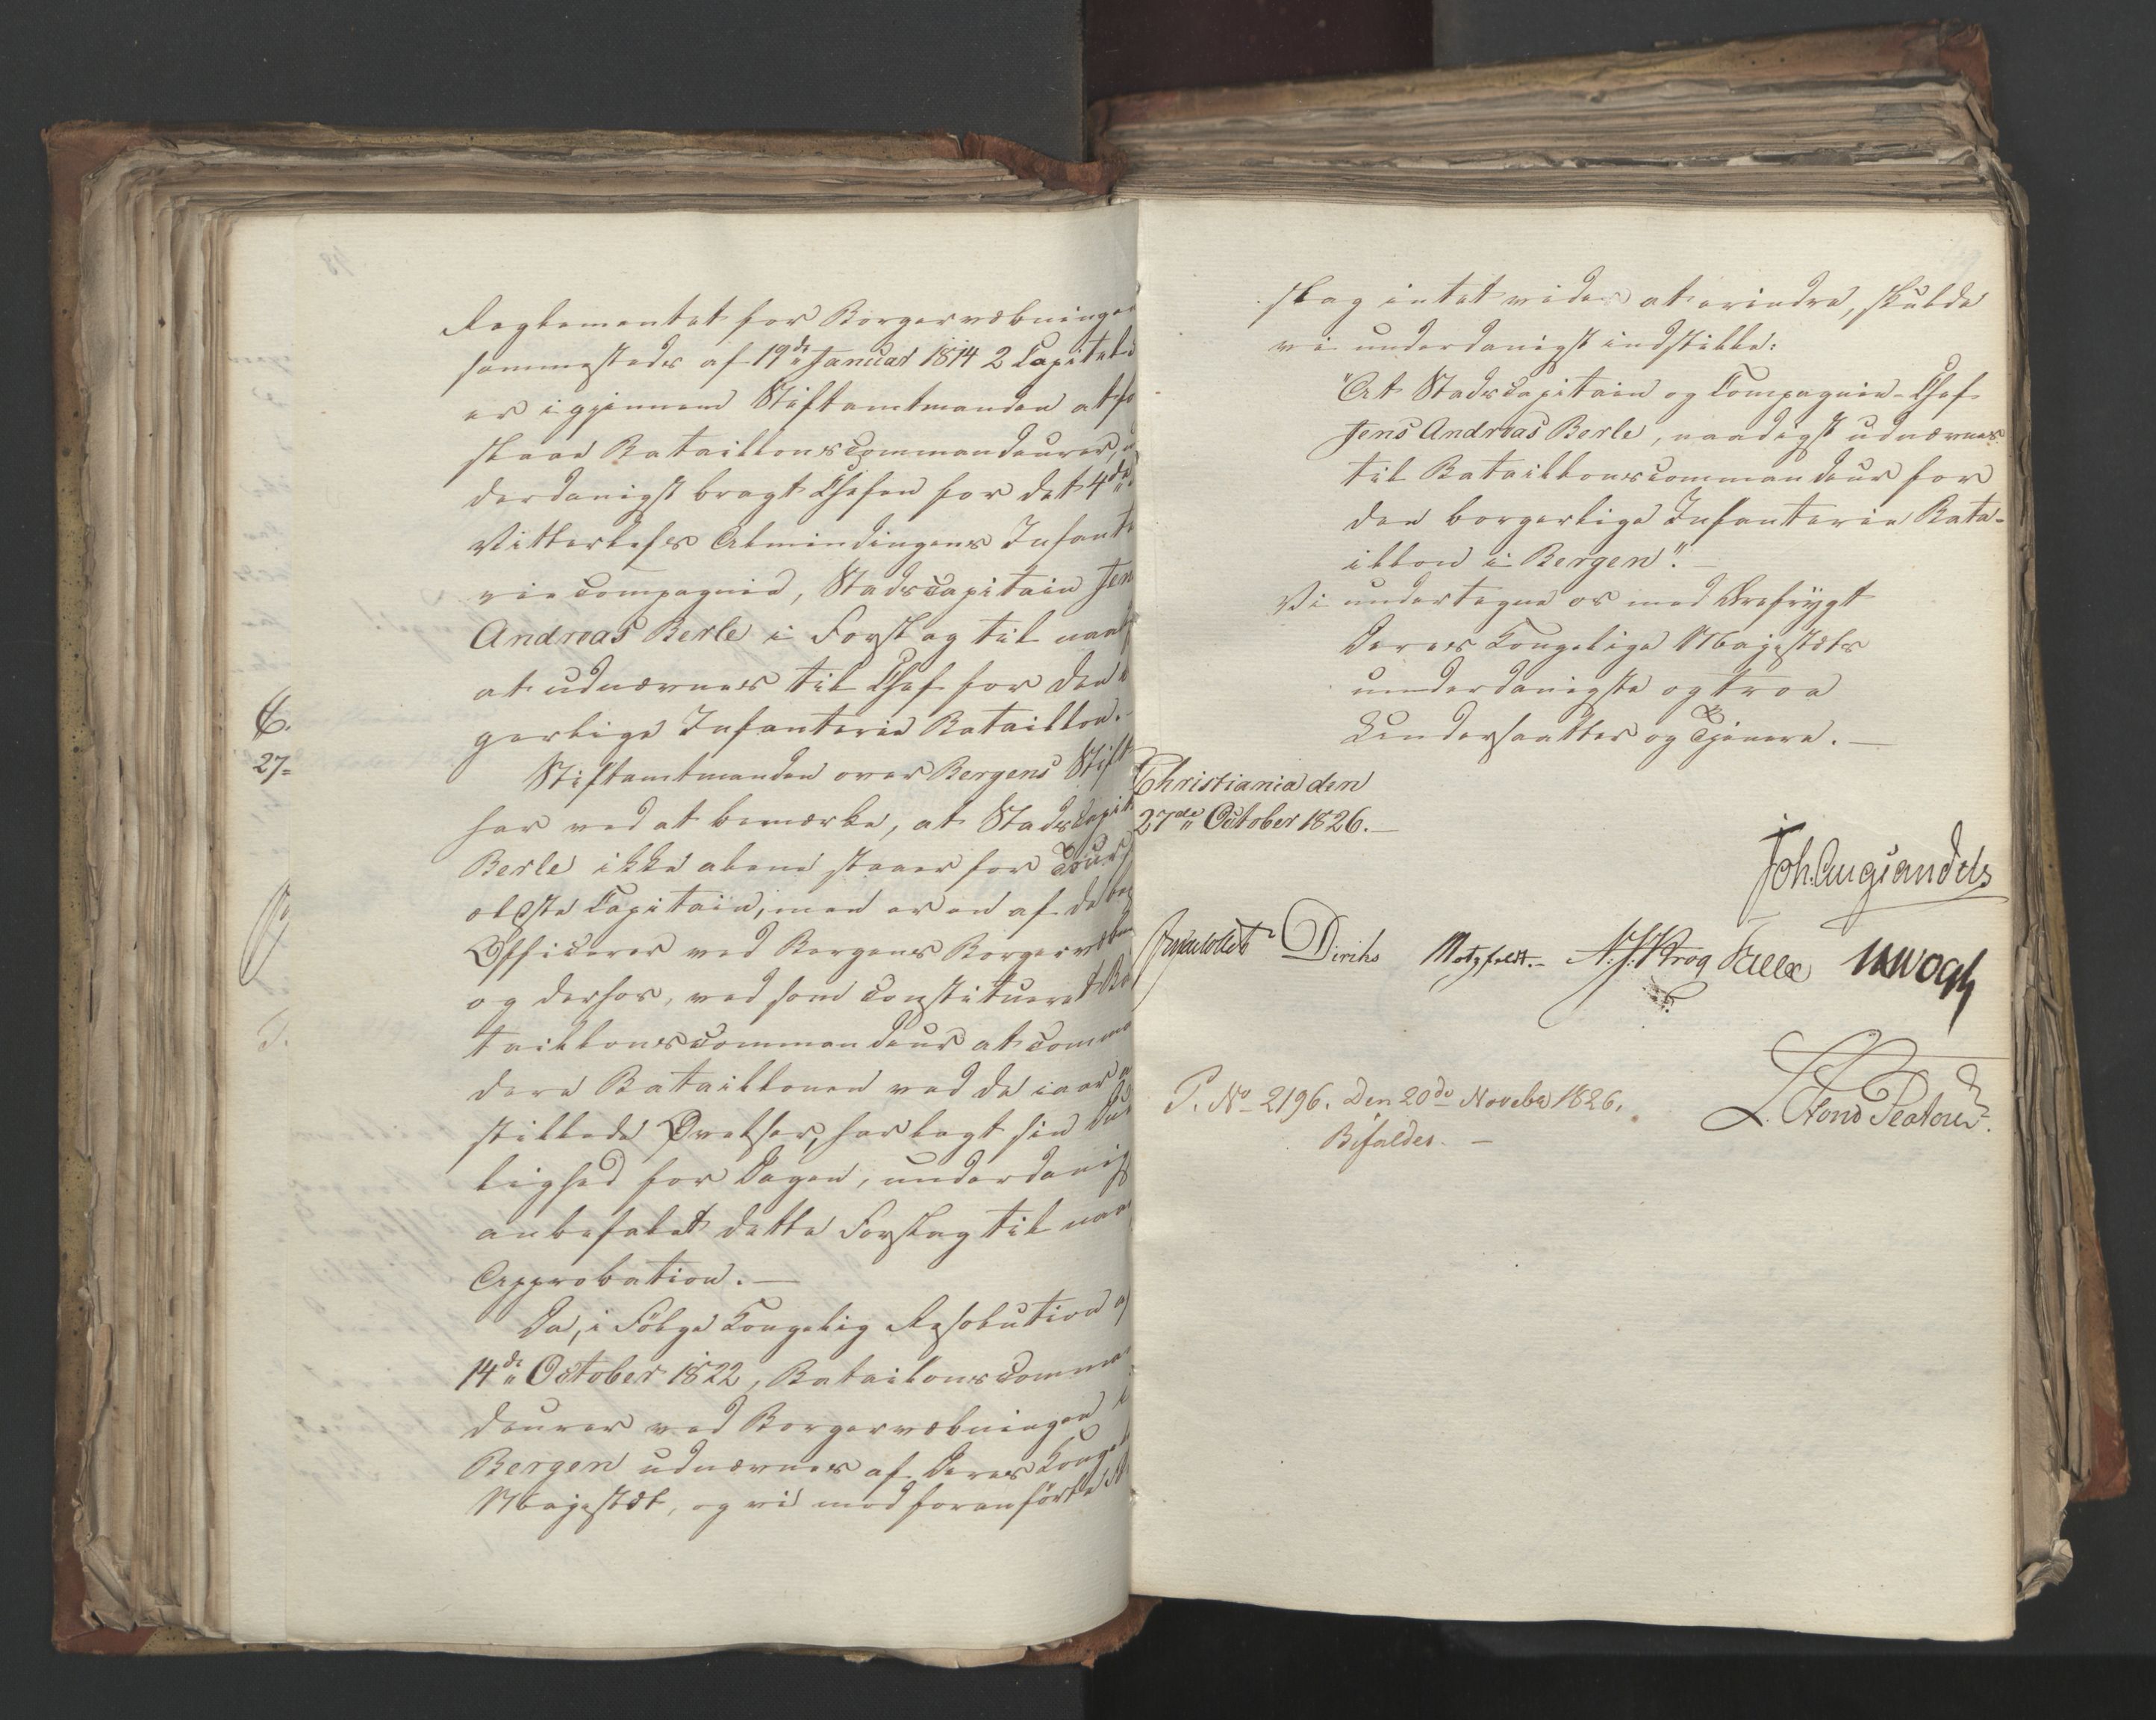 Reglementet for Borgervæbningen
sammesteds af 19de Januar 1814 2 Capitel
er igjennem Stiftamtmanden at fo
slaae Bataillonscommandeurer,
derdanigst bragt Chefen for det 4de
Vitterlefs Almindingens Infante
rie Compagnie, Stadscapitain Jen
Andreas Berle i Forslag til naad
at udnævnes til Chef for den
gerlige Infanterie Bataillon.
Stiftamtmanden over Bergens Stift
har ved at bemærke, at Stadscapit
Berle ikke alene staaer for Tour
ældste Capitain, men er en af de
Officerer ved Bergens Borgervæbn
og derhos, ved som constitueret Ba
taillonscommandeur at comman
dere Bataillonen ved de iaar
stillede Øvelser, har lagt sin Due
lighed for Dagen, underdanigst
anbefalet dette Forslag til naa
Approbation. —
Da, i Følge Kongelig Resolution af
14de October 1822, Bataillonscomman
deurer ved Borgervæbningen i
Bergen udnævnes af Deres Kongel
Majestæt, og vi mod foranførte
C.
27=
slag intet videre at erindre, skulde
vi underdanigst indstille:
"At Stadscapitain og Compagnie-Chef
Jens Andreas Berle, naadigst udnævnes
til Bataillonscommandeur for
den borgerlige Infanterie Bata-
illon i Bergen". —
Vi undertegne os med Ærefrygt
Deres Kongelige Majestæts
underdanigste og troe
Undersaatter og Tjenere. —
Christiania den
27de October 1826. —
Joh. Aug. Sandels
Diriks Motzfeldt. N. J. Krog Falbe
P. No 2196. Den 20de Novebr 1826.
Bifaldes. —